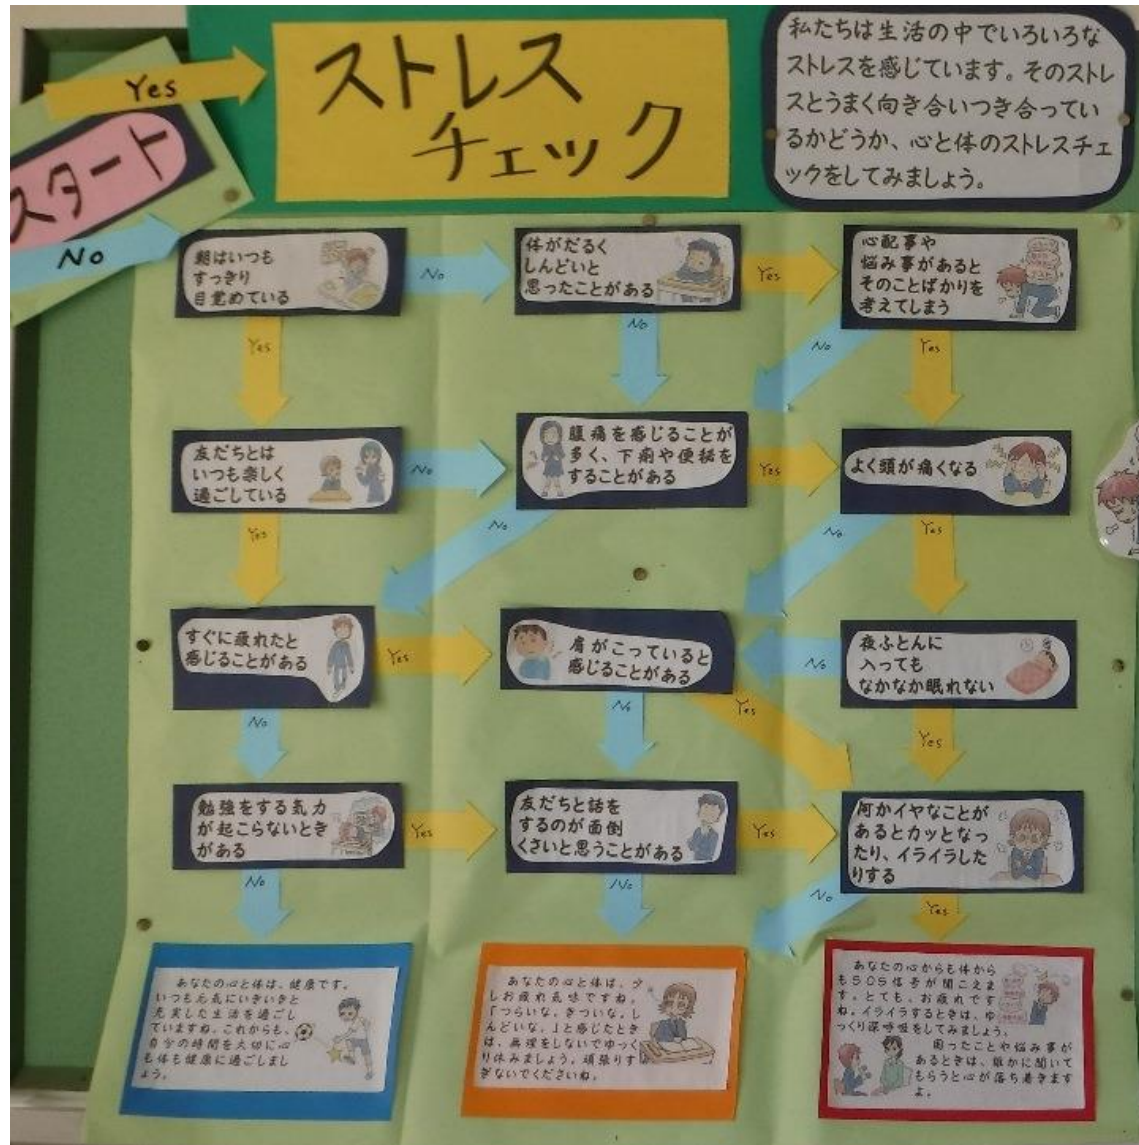 ストレス
チェック
私たちは生活の中でいろいろな
ストレスを感じています。そのストレ
スとうまく向き合いつき合ってい
るかどうか、心と体のストレスチェ
ックをしてみましょう。
Yes
スタート
No
朝はいつも
すっきり
目覚めている
No
体がだるく
しんどいと
思ったことがある
Yes
心配事や
悩み事があると
そのことばかりを
考えてしまう
Yes
No
No
Yes
友だちとは
いつも楽しく
過ごしている
No
腹痛を感じることが
多く、下痢や便秘を
することがある
Yes
よく頭が痛くなる
Yes
No
No
Yes
すぐに疲れたと
感じることがある
Yes
肩がこっていると
感じることがある
No
夜ふとんに
入っても
なかなか眠れない
No
No
Yes
Yes
勉強をする気力
が起こらないとき
がある
Yes
友だちと話を
するのが面倒
くさいと思うことがある
Yes
何かイヤなことが
あるとカッとなっ
たり、イライラした
りする
No
No
No
Yes
あなたの心と体は、健康です。
いつも元気にいきいきと
充実した生活を過ごし
ていますね。これからも、
自分の時間を大切に心
も体も健康に過ごしまし
ょう。
あなたの心と体は、少
しお疲れ気味ですね。
「つらいな、きついな、し
んどいな、」と感じたとき
は、無理をしないでゆっく
り休みましょう。頑張りす
ぎないでくださいね。
あなたの心からも体から
もSOS信号が聞こえま
す。とても、お疲れです
ね。イライラするときは、ゆ
っくり深呼吸をしてみましょう。
困ったことや悩み事が
あるときは、誰かに聞いて
もらうと心が落ち着きます
よ。